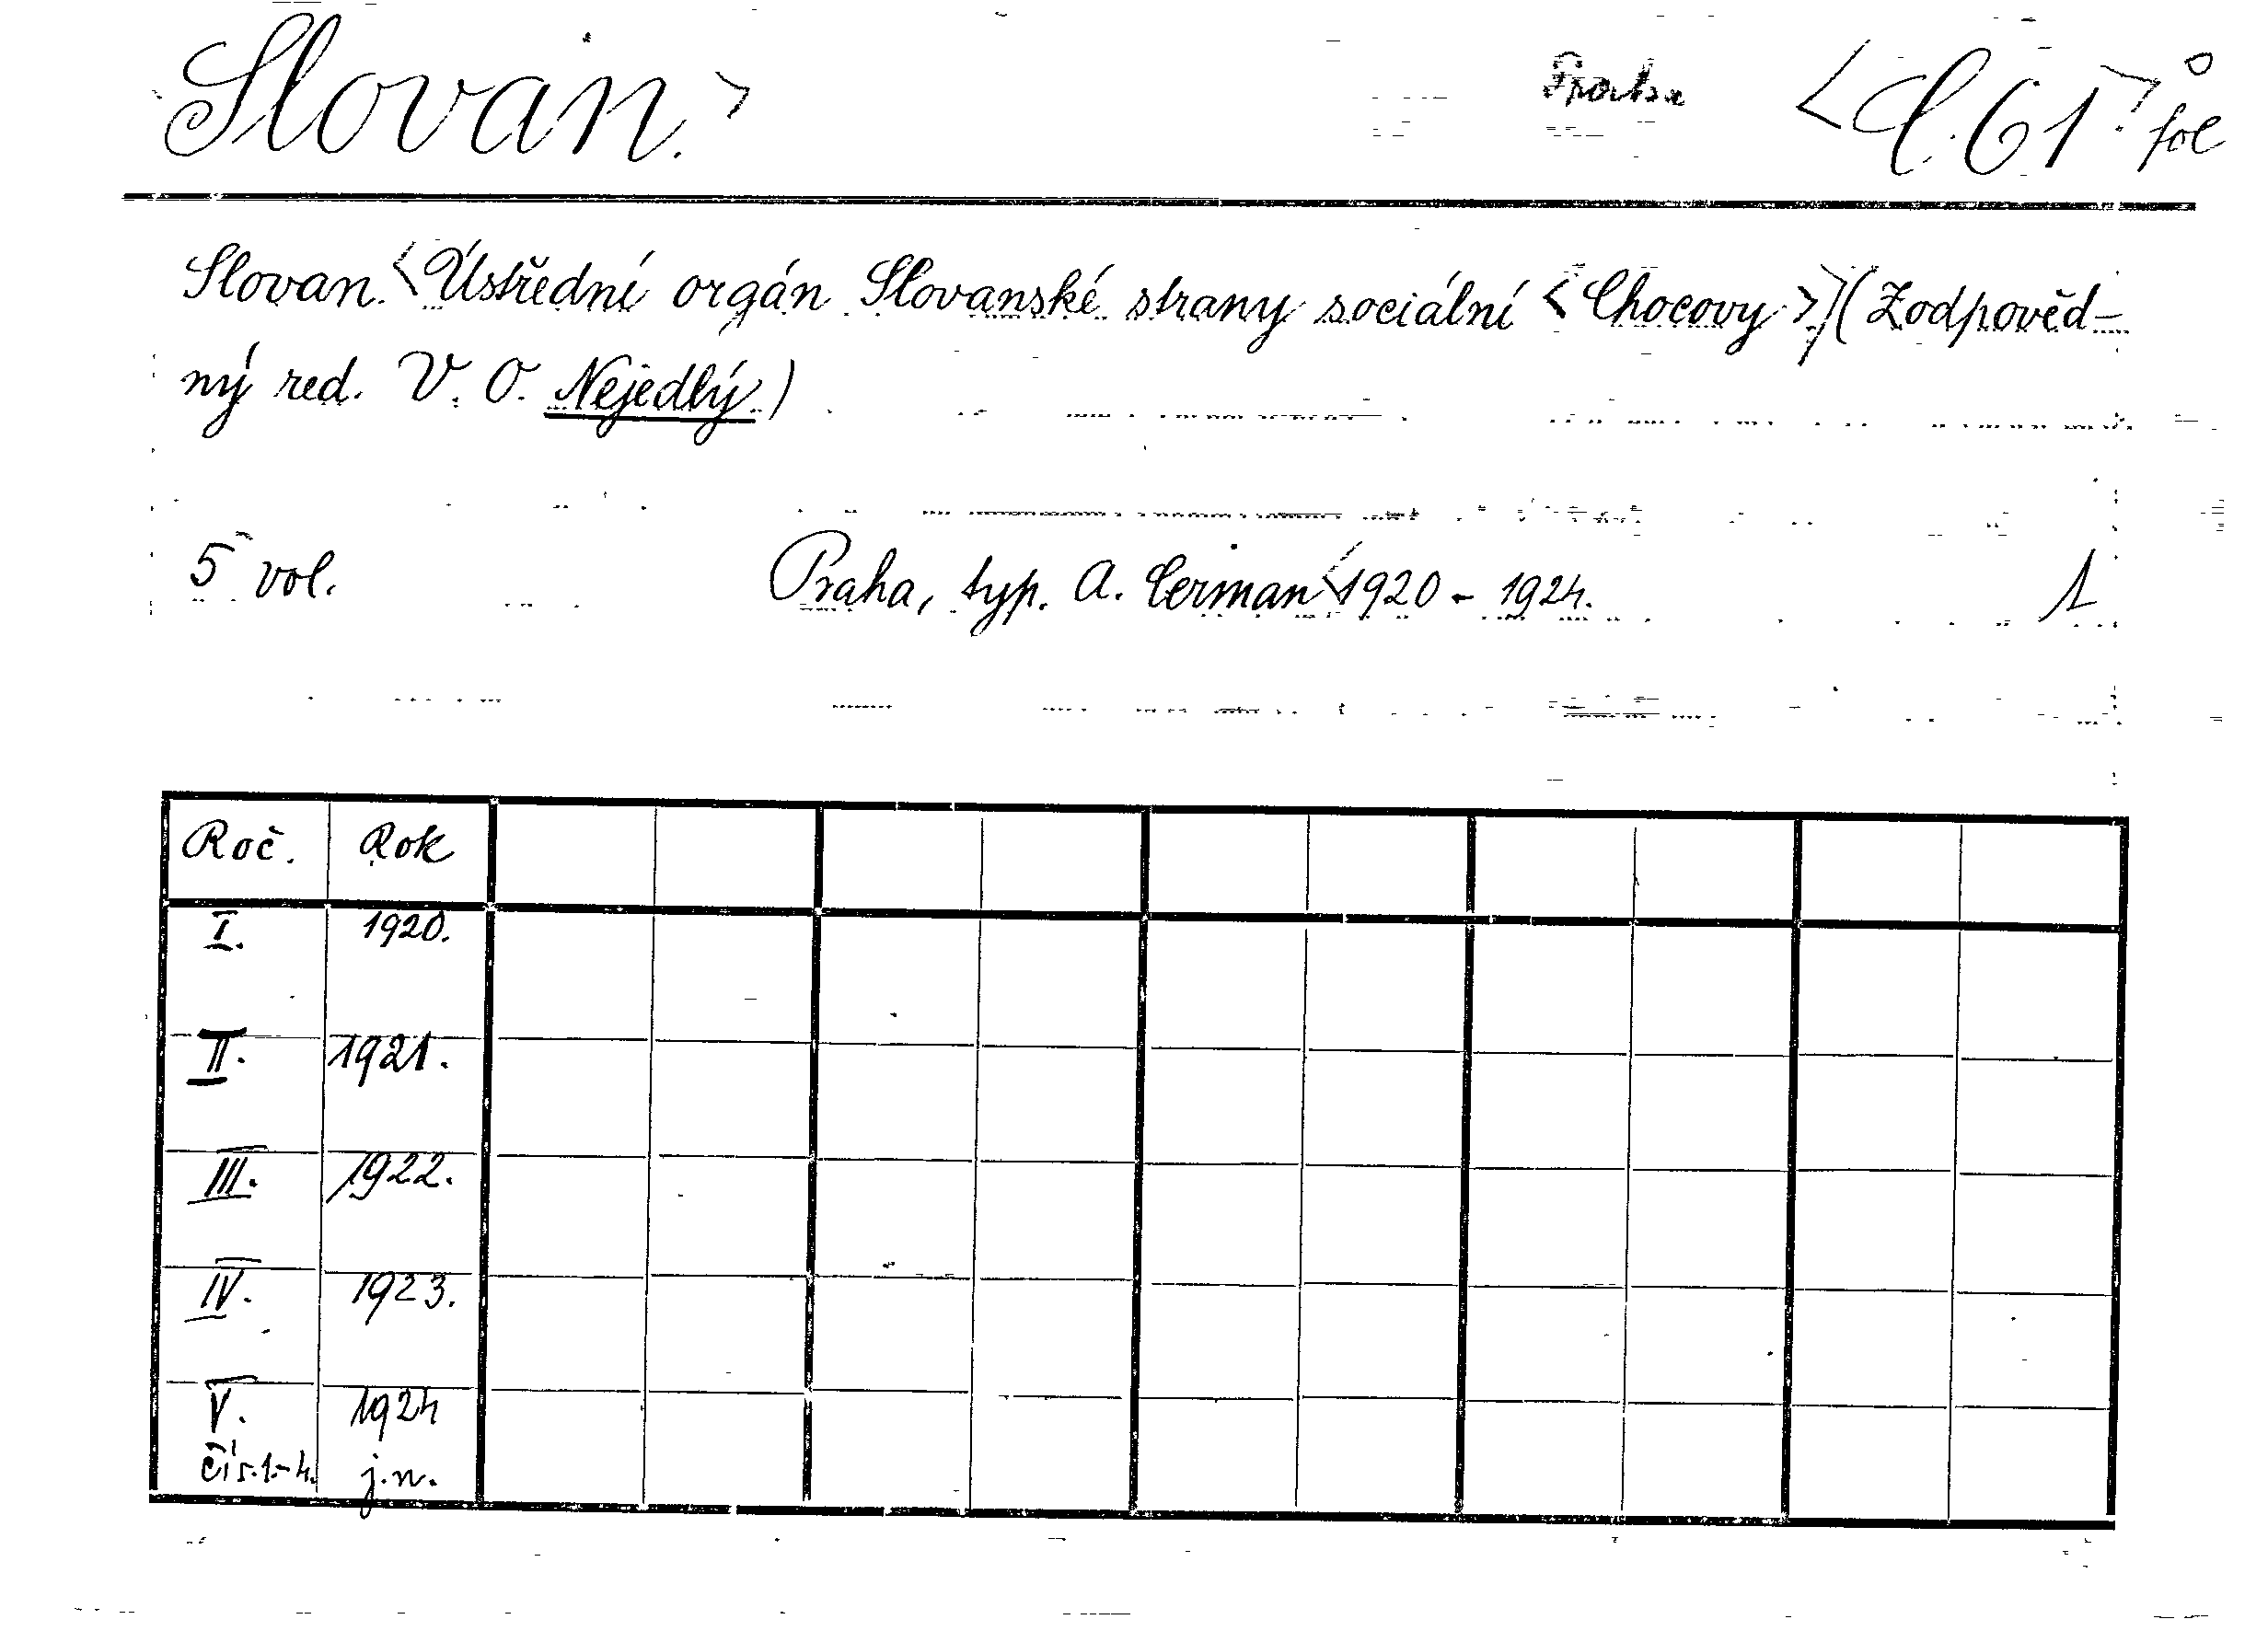 Slovan.> Praha <C.61> fol
Slovan. <Ústřední orgán Slovanské strany sociální <Chocovy>> (Zodpověd-
ný red. V. O. Nejedlý)
5 vol. Praha, typ. A. Cerman <1920 - 1924. 1
Roč. Rok
I. 1920.
II. 1921.
III. 1922.
IV. 1923.
V. 1924
čís. 1.-4. j.n.